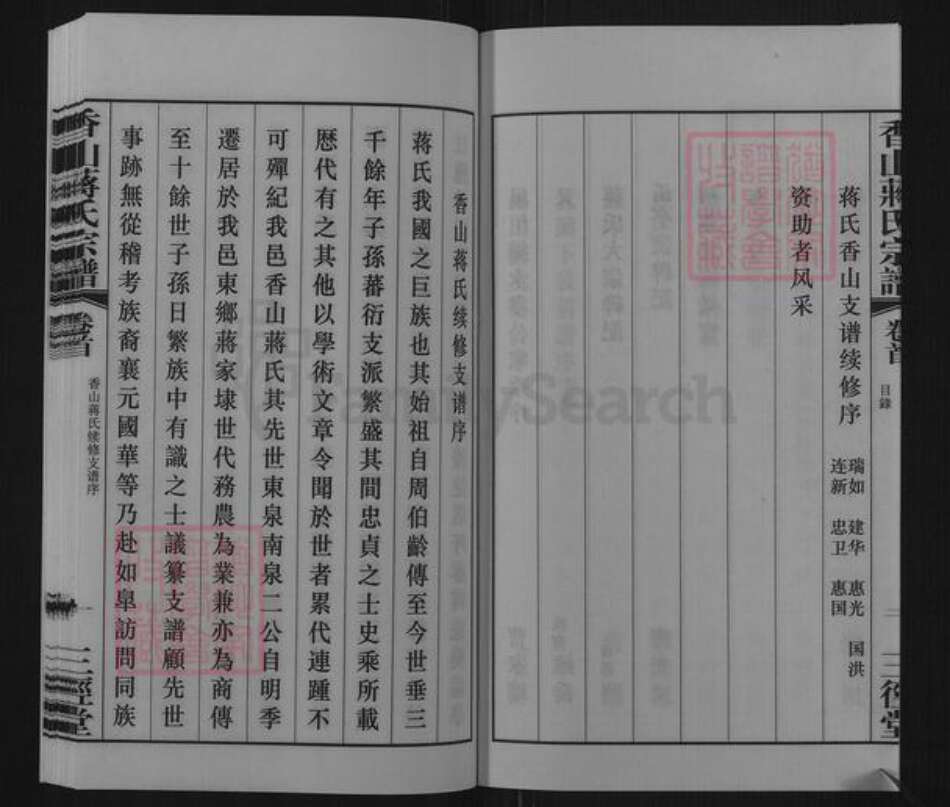 香山蔣氏宗譜
卷首
目錄
三徑堂
蒋氏香山支谱续修序
瑞如 建华 惠光 国洪
连新 忠卫 惠国
资助者风采
香山蒋氏续修支谱序
蒋氏我國之巨族也其始祖自周伯齡傳至今世垂三
千餘年子孫蕃衍支派繁盛其間忠貞之士史乘所載
歷代有之其他以學術文章令聞於世者累代連踵不
可殫紀我邑香山蔣氏其先世東泉南泉二公自明季
遷居於我邑東鄉蔣家埭世代務農為業兼亦為商傳
至十餘世子孫日繁族中有識之士議纂支譜顧先世
事跡無從稽考族裔襄元國華等乃赴如皐訪問同族
香山蔣氏宗譜
卷首
香山蒋氏续修支谱序
一
三徑堂
FamilySearch